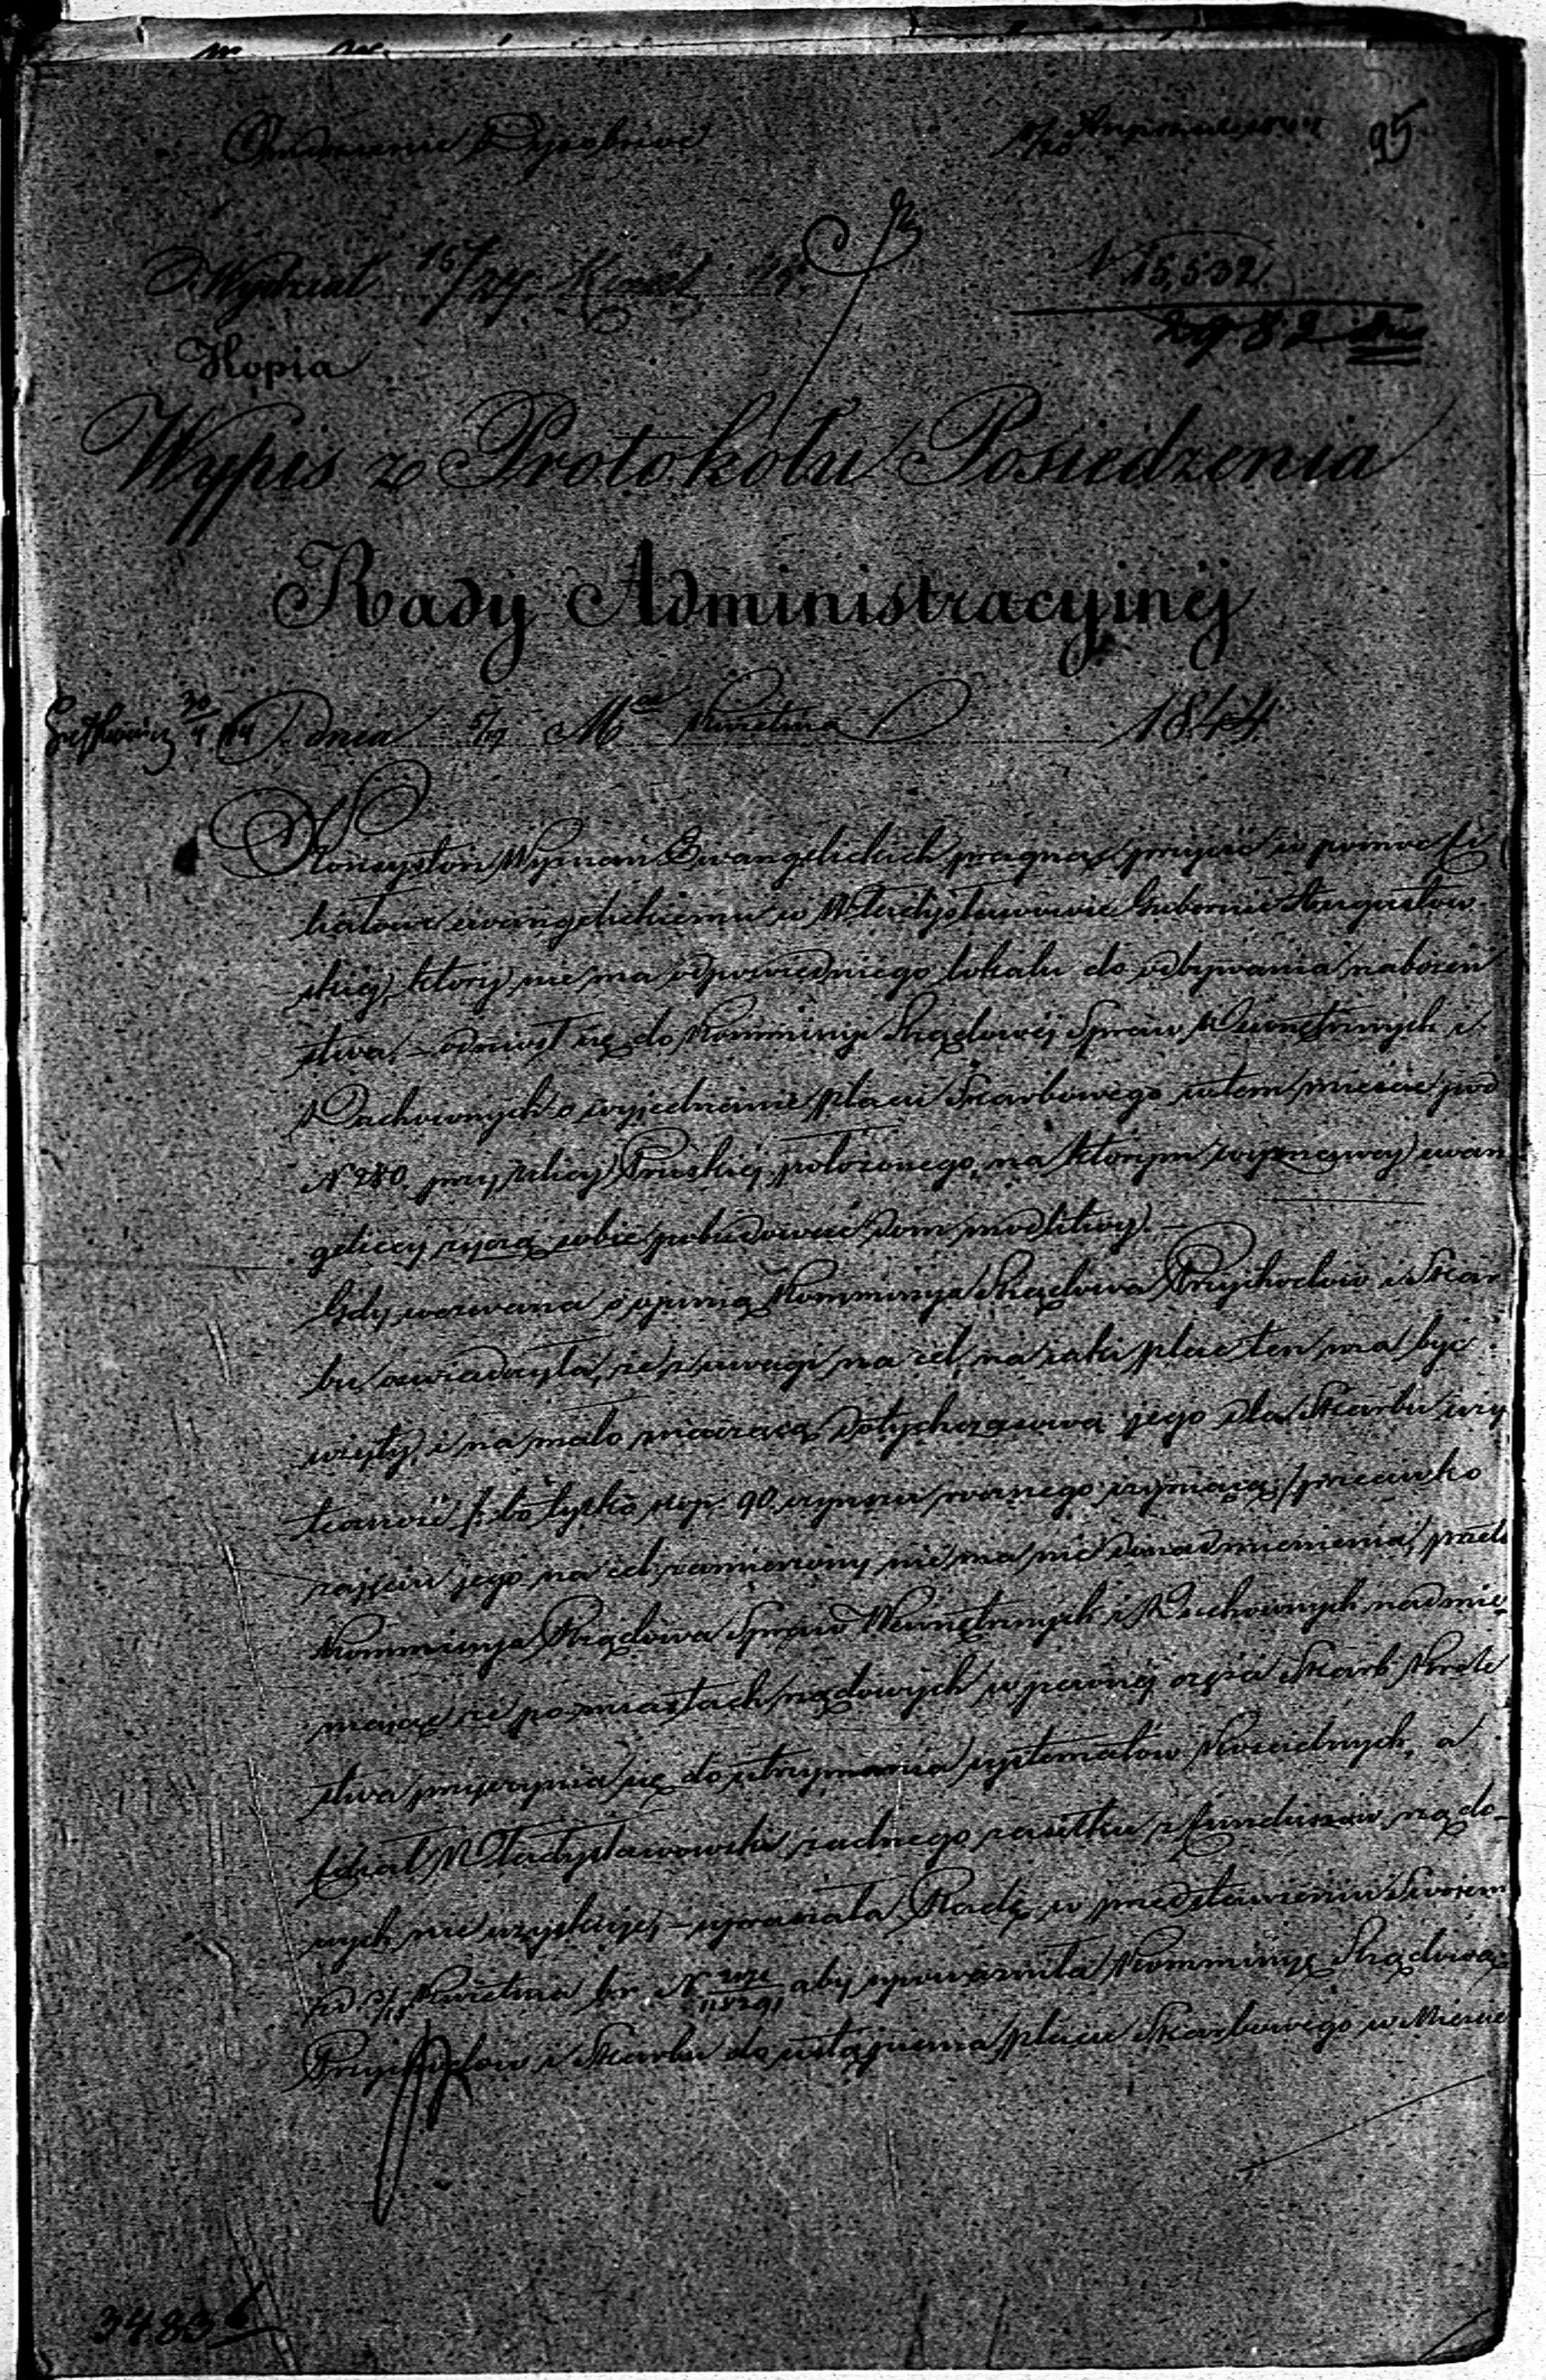 95
Wydział 15/27 Kwiet.
N 15,532
2982
Kopia
Wypis z Protokółu Posiedzenia
Rady Administracyjnéj
dnia 5/17 Mca Kwietnia 1844
Konsystorz Wyznań Ewangelickich pragnąc przyjść w pomoc fi
liałowi ewangelickiemu w Władysławowie Gubernii Augustow
skiej, który nie ma odpowiedniego lokalu do odbywania nabożeń
stwa, – odniósł się do Kommissyi Rządowéj Spraw Wewnętrznych i
Duchownych o wyjednanie placu Skarbowego w tem mieście pod
N 280 przy ulicy Pruskiéj położonego, na którym wyznawcy ewan
geliccy życzą sobie pobudować dom modlitwy. –
Gdy wezwana o opinią Kommissya Rządowa Przychodów i Skar
bu, oświadczyła, że z uwagi na cel, na jaki plac ten ma być
wzięty, i na mało znaczącą dotychczasową jego dla Skarbu uży
teczność /: bo tylko kop. 90 czynszu rocznego czyniącą :/ przeciwko
zajęciu jego na cel zamierzony nie ma nic do nadmienienia, przeto
Kommissya Rządowa Spraw Wewnętrznych i Duchownych nadmie
niając że po miastach rządowych w pewnéj części Skarb Króle
stwa przyczynia się do utrzymania systematów Kościelnych, a
filiał Władysławowski żadnego zasiłku z funduszów rządo-
wych nie uzyskuje, – upraszała Radę w przedstawieniu Swojem
z d. Kwietnia br. N aby upoważniła Kommissyę Rządową
Przychodów i Skarbu do ustąpienia placu Skarbowego w Mieście
3483